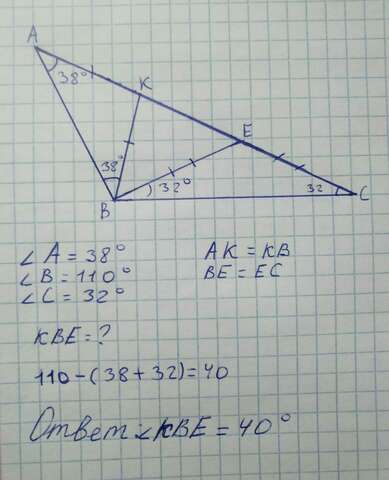 A
38°
K
38°
E
32°
32
B
C
∠A = 38°
AK = KB
∠B = 110°
BE = EC
∠C = 32°
KBE = ?
110-(38+32)=40
Ответ ∠KBE = 40°